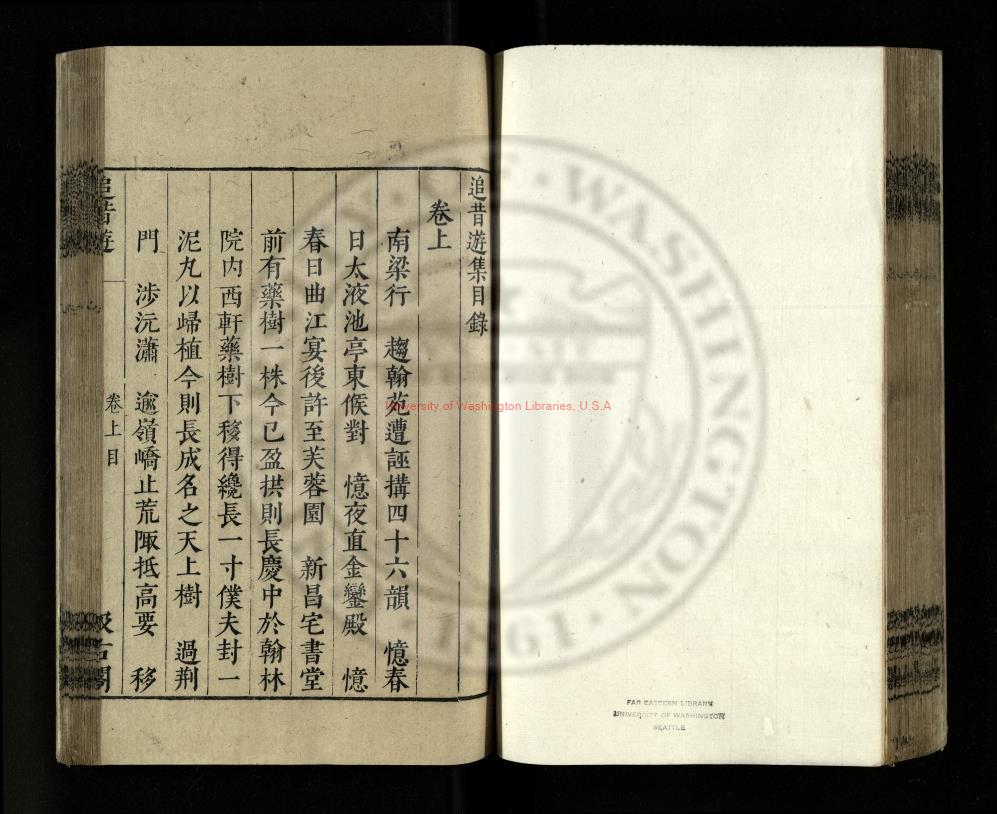 追昔遊集目錄
卷上
南梁行　趨翰苑遭誣搆四十六韻　憶春
日太液池亭東候對　憶夜直金鑾殿　憶
春日曲江宴後許至芙蓉園　新昌宅書堂
前有藥樹一株今已盈拱則長慶中於翰林
院內西軒藥樹下移得纔長一寸僕夫封一
泥丸以歸植今則長成名之天上樹　過荆
門　涉沅瀟　逾嶺嶠止荒陬抵高要　移
追昔遊
卷上目
汲古閣
University of Washington Libraries, U.S.A
WASHINGTON
1861
FAR EASTERN LIBRARY
UNIVERSITY OF WASHINGTON
SEATTLE